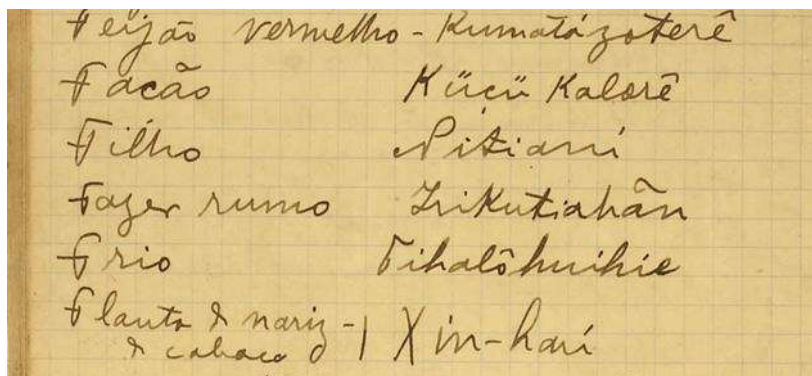 Feijão vermelho - Kumatázoterê
Facão Kücü Kalorê
Filho Nitiani
Fazer rumo Irikutiahãn
Frio Tihalôhuihie
Flauta d nariz - | Xin-hari
d cabaca